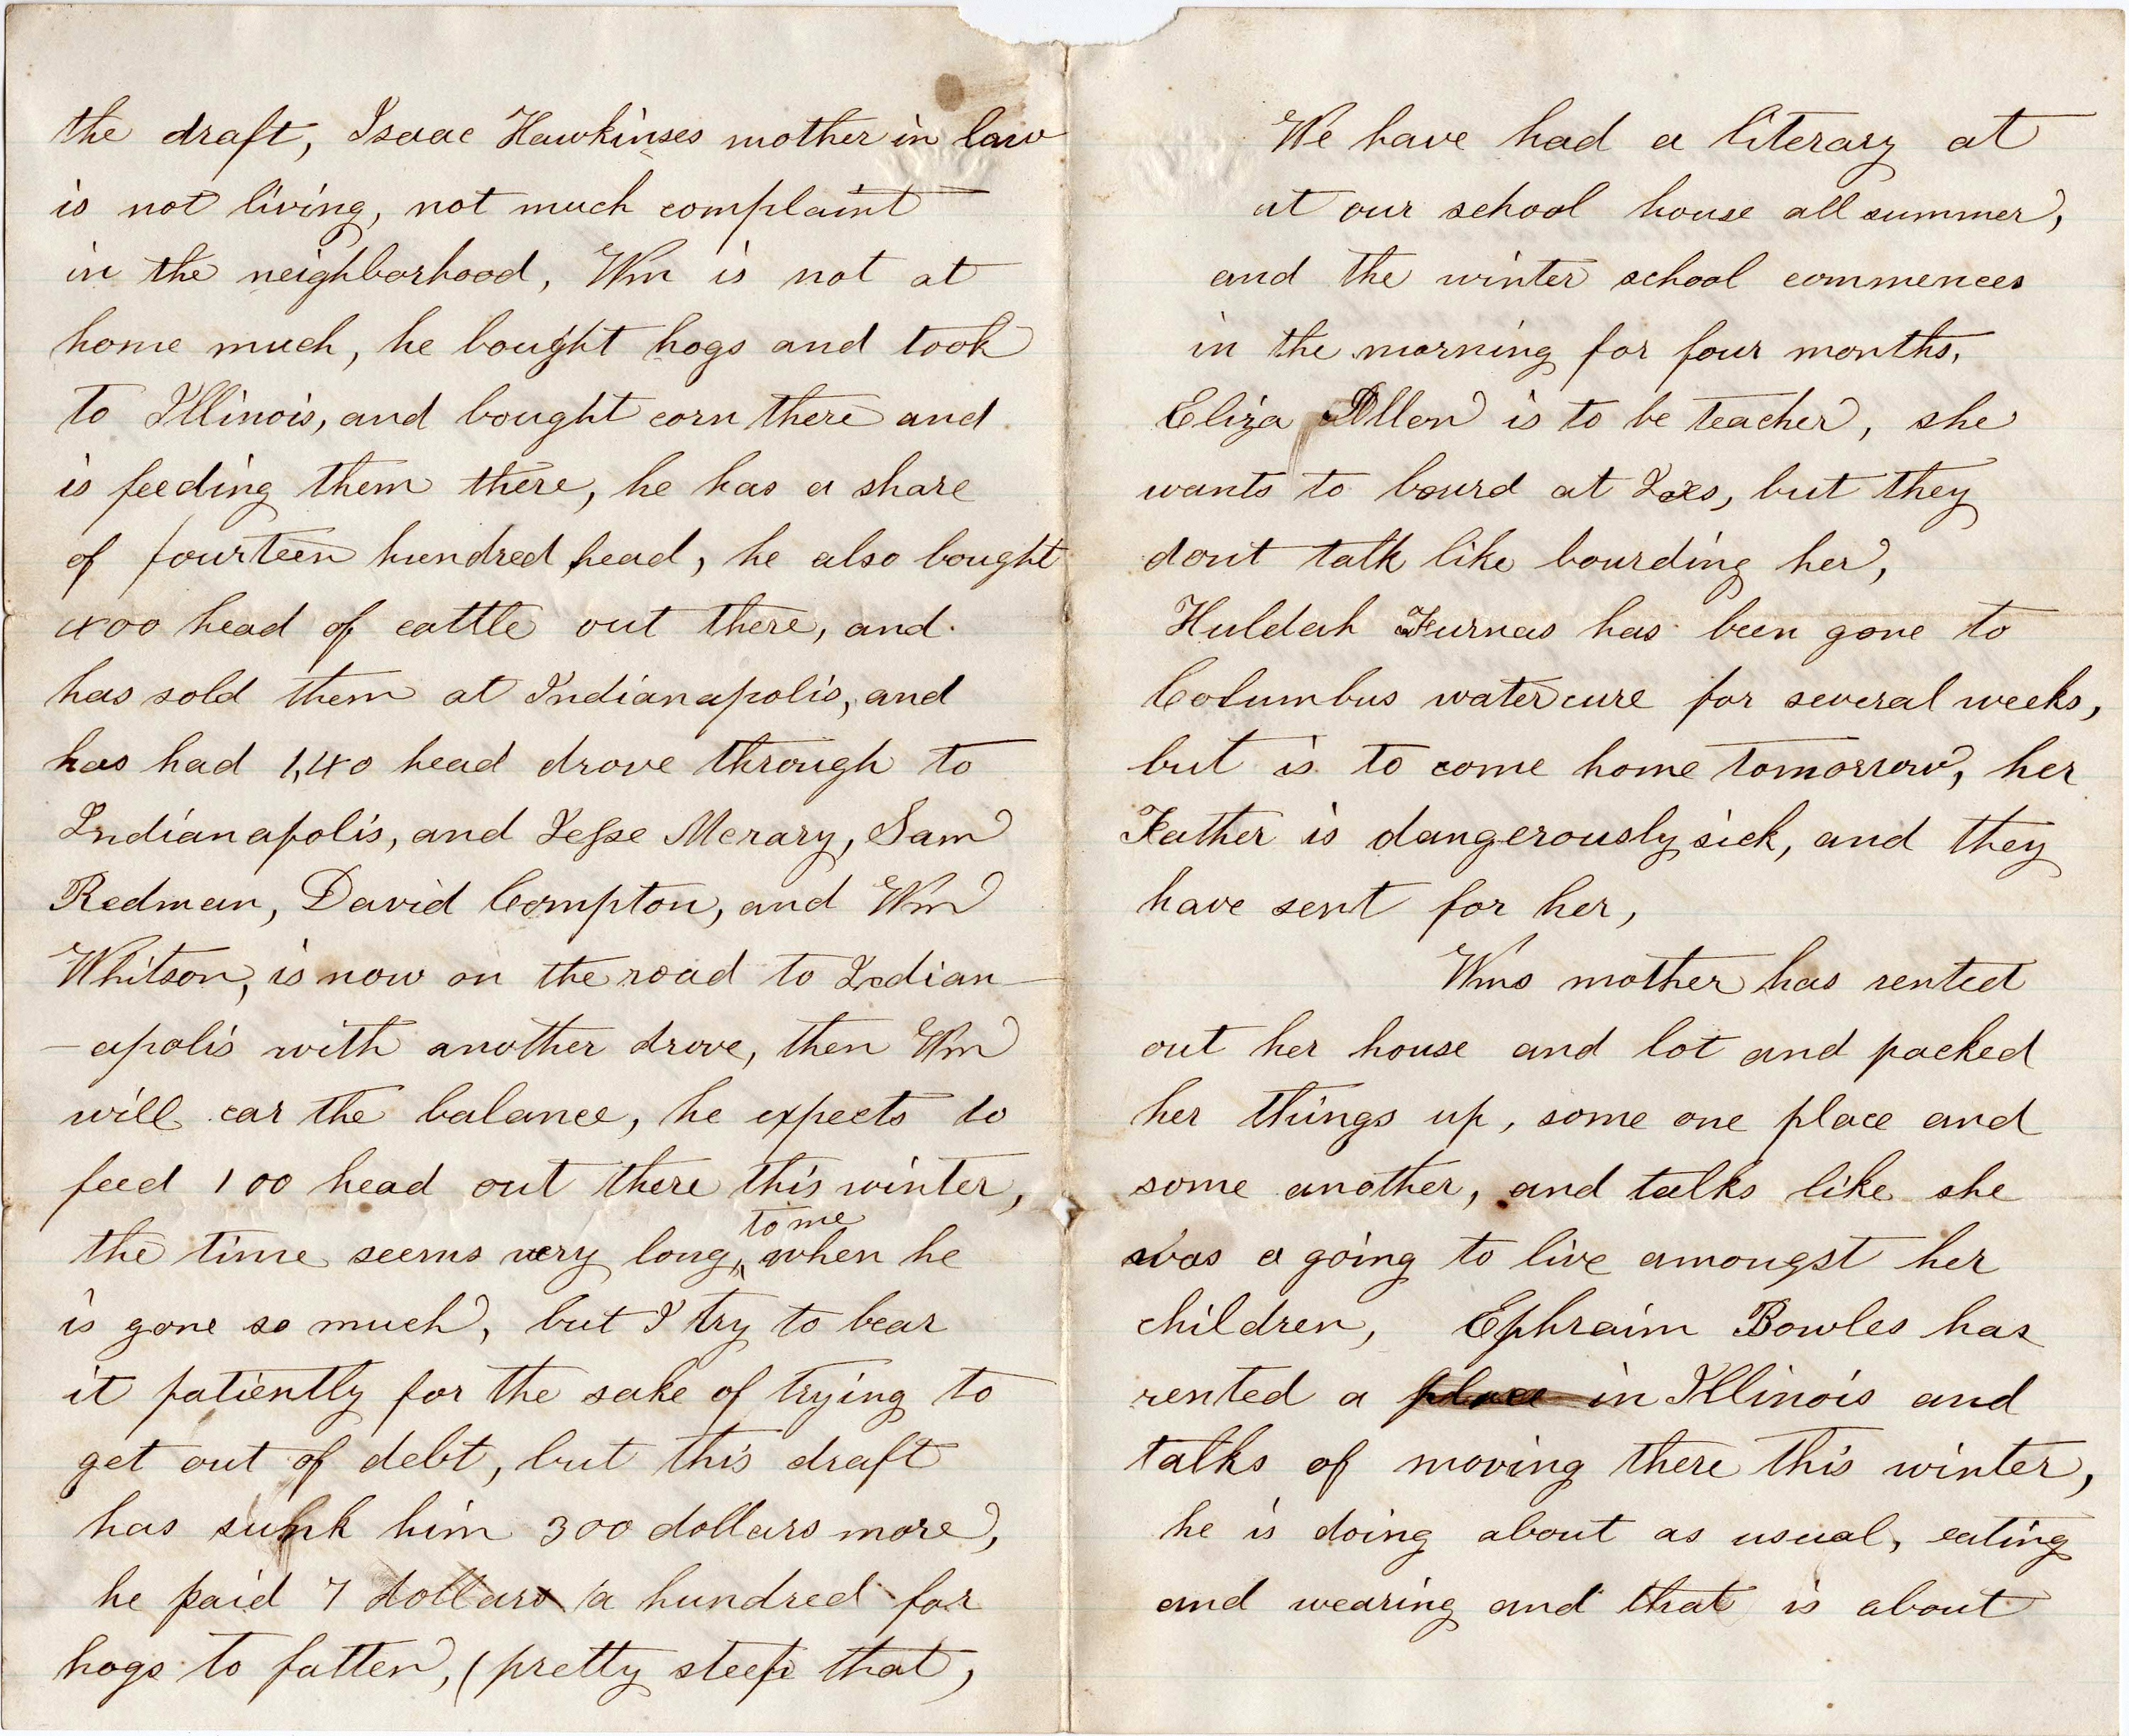 the draft, Isaac Hawkinses mother in law
is not living, not much complaint
in the neighborhood, Wm is not at
home much, he bought hogs and took
to Illinois, and bought corn there and
is feeding them there, he has a share
of fourteen hundred head, he also bought
400 head of cattle out there, and
has sold them at Indianapolis, and
has had 1,40 head drove through to
Indianapolis, and Jesse Merary, Sam
Redman, David Compton, and Wm
Whitson, is now on the road to Indian-
-apolis with another drove, then Wm
will car the balance, he expects to
feed 100 head out there this winter,
to me
the time seems very long, when he
is gone so much, but I try to bear
it patiently for the sake of trying to
get out of debt, but this draft
has sunk him 300 dollars more,
he paid 7 dollars a hundred for
hogs to fatten, (pretty steep that,
We have had a literary at
at our school house all summer,
and the winter school commences
in the morning for four months,
Eliza Allen is to be teacher, she
wants to bourd at but they
dont talk like bourding her,
Huldah Furnas has been gone to
Columbus watercure for several weeks,
but is to come home tomorrow, her
Father is dangerously sick, and they
have sent for her,
Wms mother has rented
out her house and lot and packed
her things up, some one place and
some another, and talks like she
was a going to live amongst her
children, Ephraim Bowles has
rented a place in Illinois and
talks of moving there this winter,
he is doing about as usual, eating
and wearing and that is about